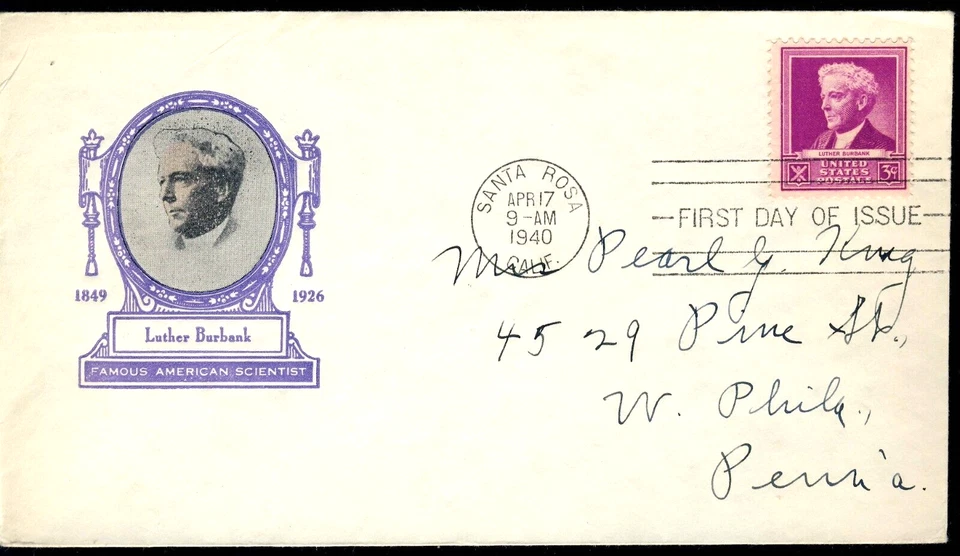 LUTHER BURBANK
UNITED
STATES
POSTAGE
3¢
SANTA ROSA
APR 17
9-AM
1940
CALIF.
FIRST DAY OF ISSUE
1849 1926
Luther Burbank
FAMOUS AMERICAN SCIENTIST
Mrs Pearl G. King
4529 Pine St.,
W. Phila.,
Penn'a.